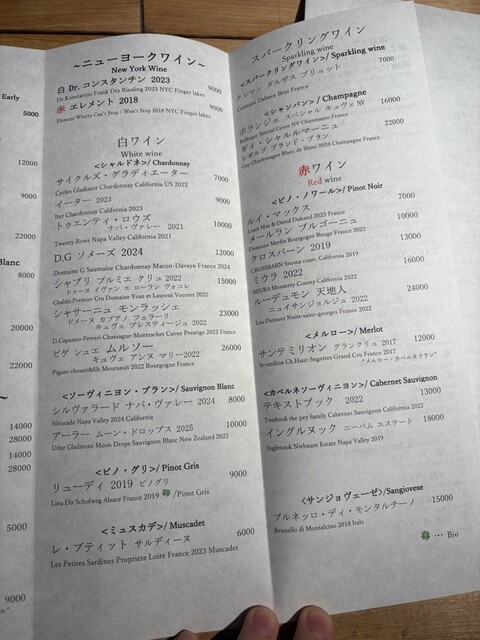 Early
5000
12000
9000
22000
Blanc
8000
20000
22000
14000
28000
14000
28000
5000
9000
~ニューヨークワイン~
New York Wine
白 Dr. コンスタンチン 2023 9000
Dr.Konstantin Frank Dry Riesling 2023 NYC Finger lakes
赤 エレメント 2018 9000
Element Winery Can't Stop / Won't Stop 2018 NYC Finger lakes
白ワイン
White wine
<シャルドネ>/ Chardonnay
サイクルズ・グラディエーター 7000
Cycles Gladiator Chardonnay California US 2022
イーター 2023 9000
Iter Chardonnay California 2023
トゥエンティ・ロウズ
ナパ・ヴァレー 2021 10000
Twenty Rows Napa Valley California 2021
D.G ソメーズ 2024 12000
Domaine G Saumaize Chardonnay Macon-Davaye France 2024
シャブリ プルミエ クリュ 2022 15000
ドメーヌ イヴァン エ ローラン ヴォコレ
Chablis Premier Cru Domaine Yvan et Laurent Vocoret 2022
シャサーニュ モンラッシェ 23000
ドメーヌ カプアノ フェラーリ
キュヴェ プレスティージュ 2022
D.Capuano-Ferreri Chassagne-Montrachet Cuvee Prestige 2022 France
ピゲ シュエ ムルソー 26000
キュヴェ アンヌ マリー2022
Piguet-chouet&fils Meursault 2022 Bourgogne France
<ソーヴィニヨン・ブラン>/ Sauvignon Blanc
シルヴァラード ナパ・ヴァレー 2024 8000
Silvarado Napa Valley 2024 California
アーラー ムーン・ドロップス 2025 10000
Urlar Gladstone Moon Drops Sauvignon Blanc New Zealand 2025
<ピノ・グリ>/ Pinot Gris
リューディ 2019 ピノグリ 9000
Lieu Dit Schofweg Alsace France 2019 🍀 /Pinot Gris
<ミュスカデ>/ Muscadet
レ・プティット サルディーヌ 6000
Les Petites Sardines Propriete Loire France 2023 Muscadet
スパークリングワイン
Sparkling wine
<スパークリングワイン>/ Sparkling wine
クレマン ダルザス ブリュット 7000
Cremant Dalsace Brut France
<シャンパン>/ Champagne
ボランジェ スペシャル キュヴェ NV 16000
Bollinger Special Cuvee NV Champagne France
ギィ・シャルルマーニュ 22000
レギルブ ブラン・ド・ブラン
Guy Charlemagne Blanc de Blanc 2024 Champagne France
赤ワイン
Red wine
<ピノ・ノワール>/ Pinot Noir
ルイ・マックス 7000
Louis Max & David Duband 2023 France
メールラン ブルゴーニュ 10000
Domaine Merlin Bourgogne Rouge France 2022
クロスバーン 2019 13000
CROSSBARN Sonoma coast, California 2019
ミウラ 2022 16000
MIURA Monterey County California 2022
ルーデュモン 天地人 24000
ニュイサンジョルジュ 2022
Lou Dumont Nuits-saint-georges France 2022
<メルロー>/ Merlot
サンテミリオン グランクリュ 2017 12000
St-emilion Ch.Haut-Segottes Grand Cru France 2017
"メルロー・カベルネフラン"
<カベルネソーヴィニヨン>/ Cabernet Sauvignon
テキストブック 2022 13000
Textbook the pey family Cabernet Sauvignon California 2022
イングルヌック ニーバム エステート 18000
Inglenook Niebaum Estate Napa Valley 2019
<サンジョヴェーゼ>/Sangiovese
ブルネッロ・ディ・モンタルチーノ 15000
Brunello di Montalcino 2018 Italy
🍀 … Bio